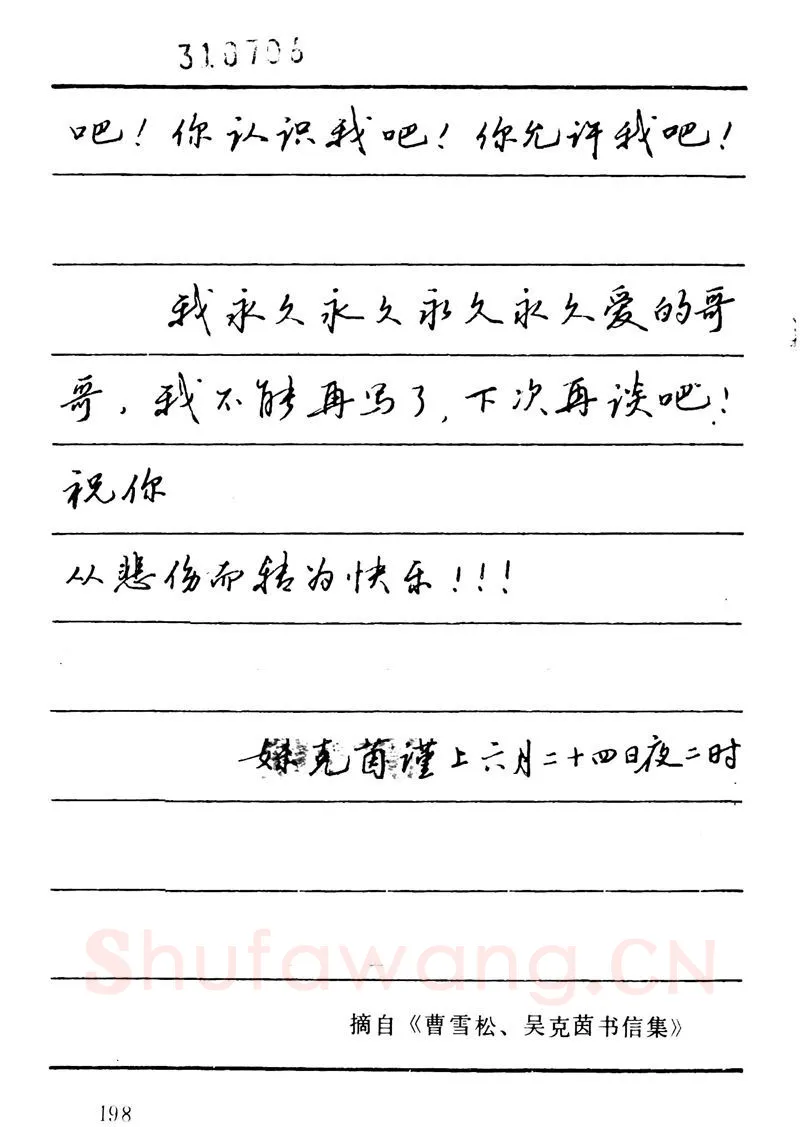 310706
吧！你认识我吧！你允许我吧！
我永久永久永久永久爱的哥
哥，我不能再写了，下次再谈吧！
祝你
从悲伤而转为快乐！！！
妹克茵谨上六月二十四日夜二时
Shufawang.CN
摘自《曹雪松、吴克茵书信集》
198